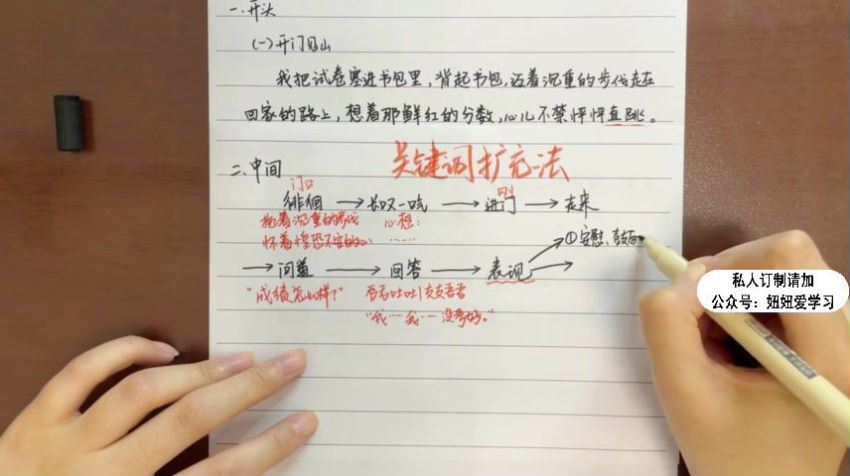 一.开头
(一)开门见山
我把试卷塞进书包里,背起书包,迈着沉重的步伐走在
回家的路上,想着那鲜红的分数,心儿不禁怦怦直跳。
关键词扩充法
二.中间
门口
徘徊→长叹一口气→进门→走来
拖着沉重的步伐 心想:
怀着惶恐不安的心 ……
①安慰、鼓
→问道→回答→表现
"成绩怎么样?" 吞吞吐吐 支支吾吾
"我……我……没考好。"
私人订制请加
公众号:妞妞爱学习